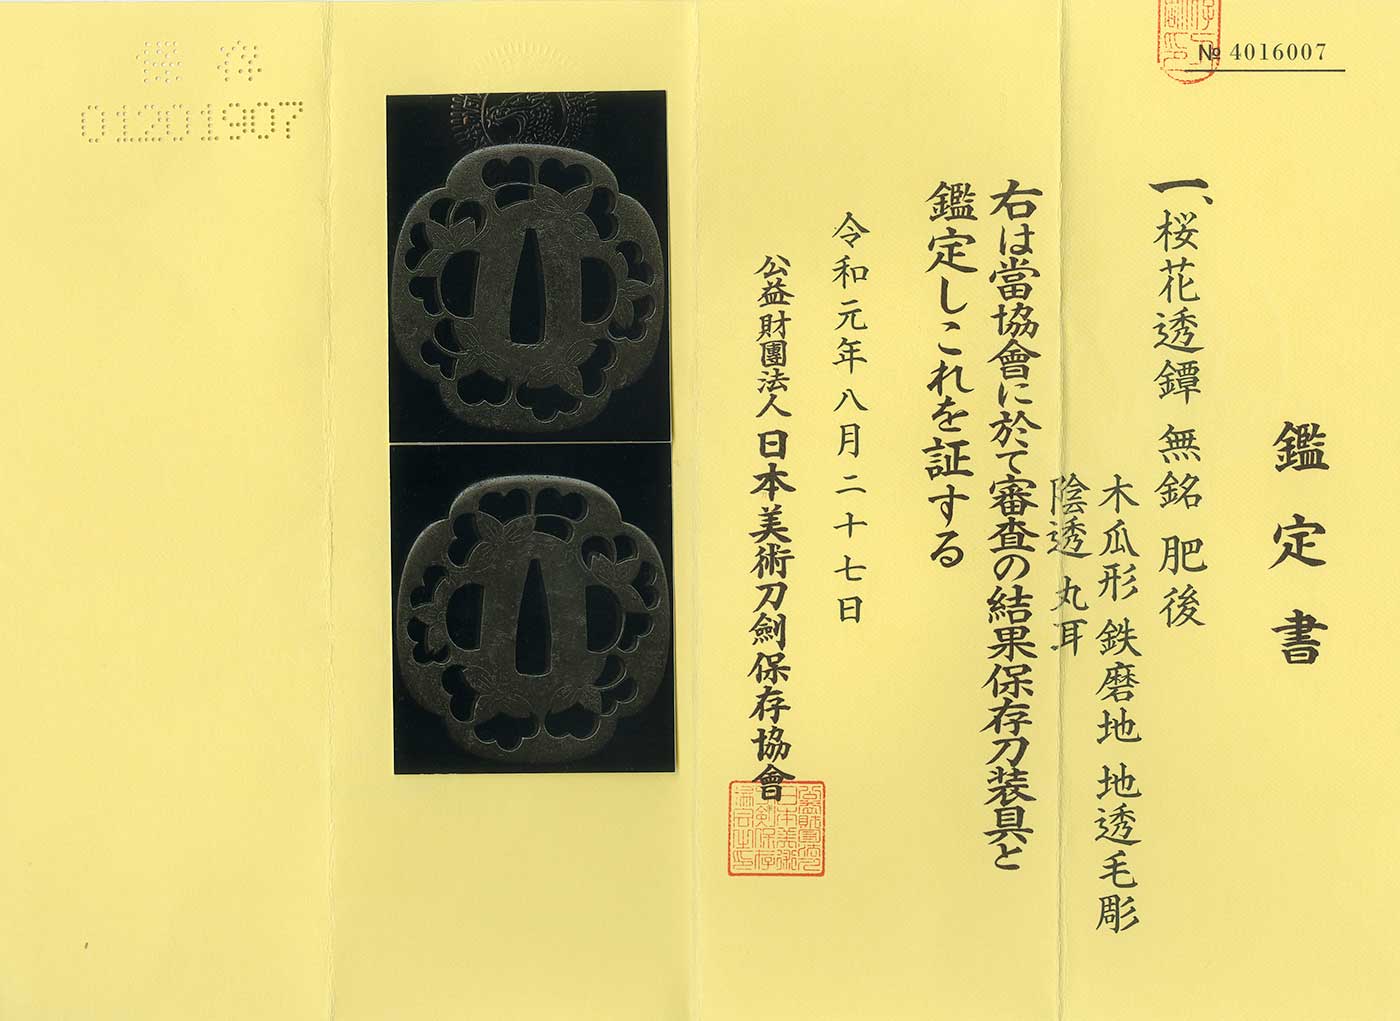 № 4016007
鑑定書
一、桜花透鐔 無銘 肥後
木瓜形 鉄磨地 地透毛彫
陰透 丸耳
右は當協會に於て審査の結果保存刀装具と
鑑定しこれを証する
令和元年八月二十七日
公益財團法人 日本美術刀劍保存協會
保存
01201907